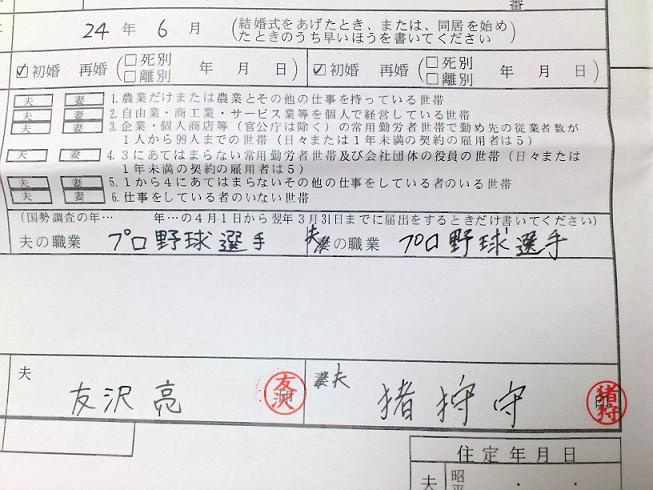 番
24 年 6 月 (結婚式をあげたとき、または、同居を始めたときのうち早いほうを書いてください)
☑初婚 再婚 (□死別 □離別 年 月 日) ☑初婚 再婚 (□死別 □離別 年 月 日)
夫 妻 1.農業だけまたは農業とその他の仕事を持っている世帯
夫 妻 2.自由業・商工業・サービス業等を個人で経営している世帯
夫 妻 3.企業・個人商店等(官公庁は除く)の常用勤労者世帯で勤め先の従業者数が
1人から99人までの世帯(日々または1年未満の契約の雇用者は5)
夫 妻 4.3にあてはまらない常用勤労者世帯及び会社団体の役員の世帯(日々または
1年未満の契約の雇用者は5)
夫 妻 5.1から4にあてはまらないその他の仕事をしている者のいる世帯
夫 妻 6.仕事をしている者のいない世帯
(国勢調査の年… 年…の4月1日から翌年3月31日までに届出をするときだけ書いてください)
夫の職業 プロ野球選手 夫妻の職業 プロ野球選手
夫 友沢亮 友沢 印 妻夫 猪狩守 猪狩 印
住定年月日
夫 昭 平 ・ ・